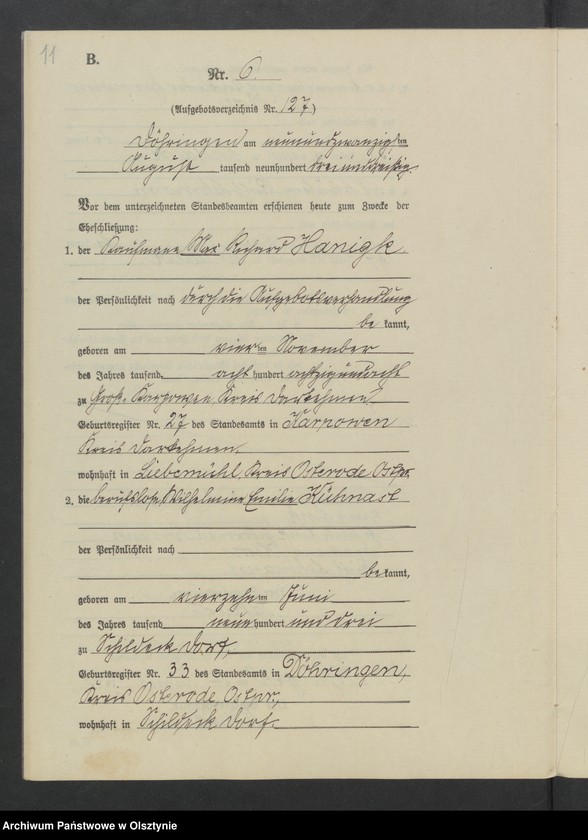 11
B.
Nr. 6.
(Aufgebotsverzeichnis Nr. 127)
Döhringen am neunundzwanzigsten
August tausend neunhundert dreiunddreißig.
Vor dem unterzeichneten Standesbeamten erschienen heute zum Zwecke der
Eheschließung:
1. der Kaufmann Max Richard Hanigk,
der Persönlichkeit nach durch die Aufgebotsverhandlung
be kannt,
geboren am vierten November
des Jahres tausend acht hundert achtzigundacht
zu Groß-Karpowen, Kreis Darkehmen.
Geburtsregister Nr. 27 des Standesamts in Karpowen
Kreis Darkehmen.
wohnhaft in Liebemühl, Kreis Osterode Ostpr.
2. die berufslose, Wilhelmine Emilie Kühnast
der Persönlichkeit nach
be kannt,
geboren am vierzehnten Juni
des Jahres tausend neun hundert und drei
zu Schildeck Dorf.
Geburtsregister Nr. 33 des Standesamts in Döhringen,
Kreis Osterode, Ostpr.,
wohnhaft in Schildeck Dorf.
Archiwum Państwowe w Olsztynie